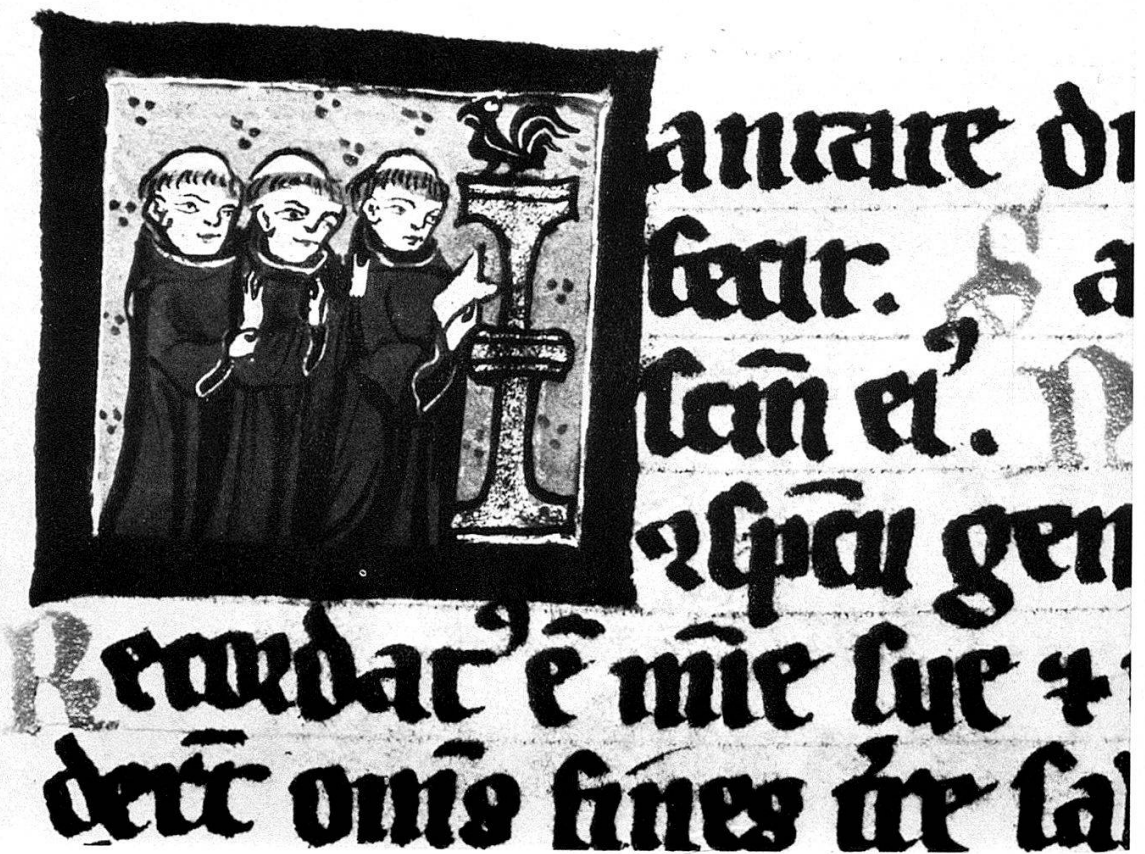 antare dn
fecit. S a
scm̄ eiꝰ. N
ꝯspc̄u gen
Recordatꝰ ē mīe sue ⁊
der̄t om̄s fines t̓re sal